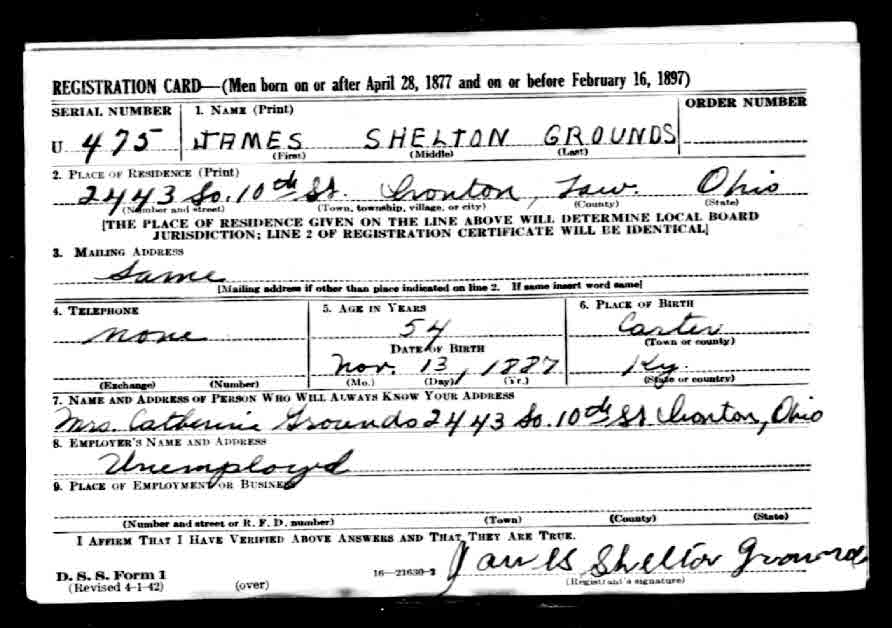 REGISTRATION CARD—(Men born on or after April 28, 1877 and on or before February 16, 1897)
SERIAL NUMBER 1. NAME (Print) ORDER NUMBER
U 475 JAMES SHELTON GROUNDS
(First) (Middle) (Last)
2. PLACE OF RESIDENCE (Print)
2443 So. 10th St. Ironton, Law. Ohio
(Number and street) (Town, township, village, or city) (County) (State)
[THE PLACE OF RESIDENCE GIVEN ON THE LINE ABOVE WILL DETERMINE LOCAL BOARD
JURISDICTION; LINE 2 OF REGISTRATION CERTIFICATE WILL BE IDENTICAL]
3. MAILING ADDRESS
Same
[Mailing address if other than place indicated on line 2. If same insert word same]
4. TELEPHONE 5. AGE IN YEARS 6. PLACE OF BIRTH
None 54 Carter
DATE OF BIRTH (Town or county)
Nov. 13, 1887 Ky.
(Exchange) (Number) (Mo.) (Day) (Yr.) (State or country)
7. NAME AND ADDRESS OF PERSON WHO WILL ALWAYS KNOW YOUR ADDRESS
Mrs. Catherine Grounds 2443 So. 10th St Ironton, Ohio
8. EMPLOYER'S NAME AND ADDRESS
Unemployed
9. PLACE OF EMPLOYMENT OR BUSINESS
(Number and street or R. F. D. number) (Town) (County) (State)
I AFFIRM THAT I HAVE VERIFIED ABOVE ANSWERS AND THAT THEY ARE TRUE.
James Shelton Grounds
D. S. S. Form 1 16—21630-2 (Registrant's signature)
(Revised 4-1-42) (over)